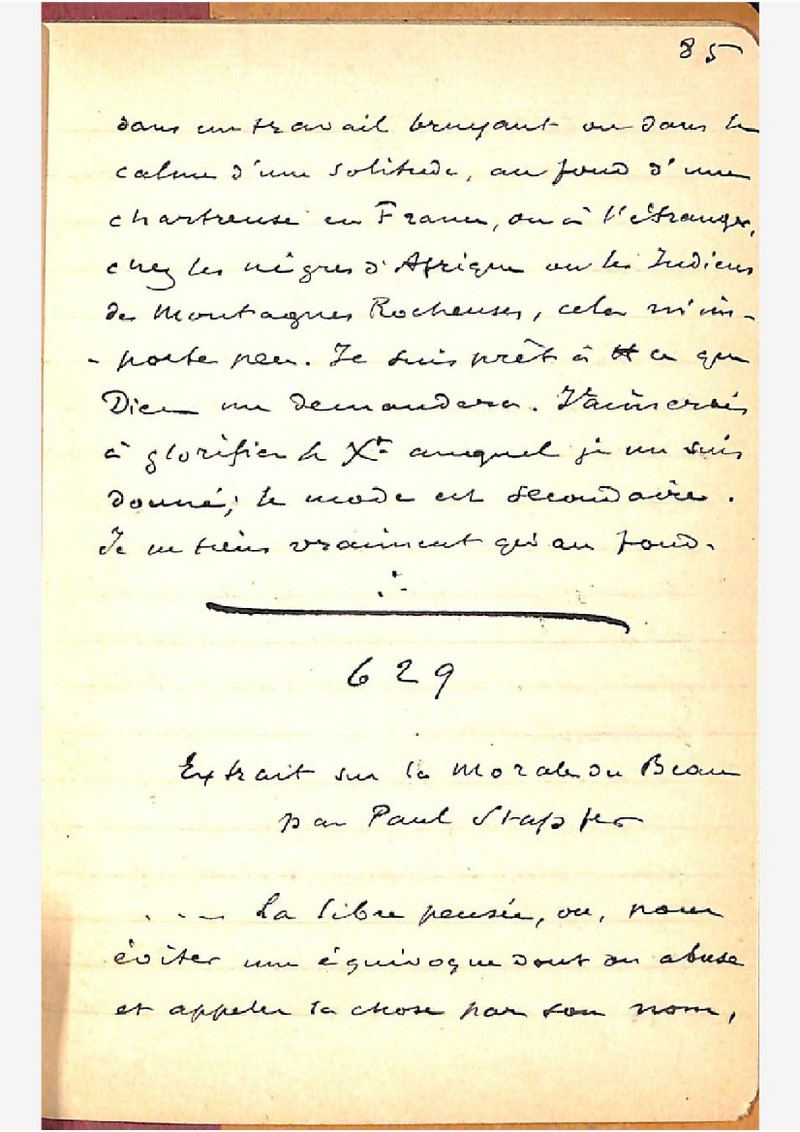 85
dans un travail bruyant ou dans le
calme d'une solitude, au fond d'une
chartreuse en France, ou à l'étranger,
chez les nègres d'Afrique ou les Indiens
des Montagnes Rocheuses, cela m'im-
- porte peu. Je suis prêt à ce que
Dieu me demandera. J'aimerais
à glorifier le Xt auquel je me suis
donné; le mode est secondaire.
Je ne tiens vraiment qu'au fond.
629
Extrait sur la Morale du Beau
par Paul Stapfer
. . . La libre pensée, ou, pour
éviter une équivoque dont on abuse
et appeler la chose par son nom,